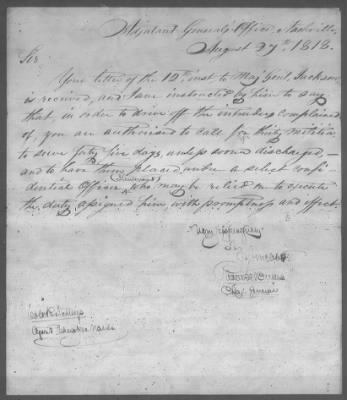 Adjutant General's Office, Nashville,
August 27th, 1818.
Sir
Your letter of the 12th inst to Maj Genl. Jackson
is received, and I am instructed by him to say
that, in order to drive off the intruders complained
of, you are authorised to call for thirty militia
to serve forty five days, unless sooner discharged,—
and to have them placed under a select confi
dential Officer, who may be relied on to execute
the duty assigned him with promptness and effect.
Very respectfully
Agent